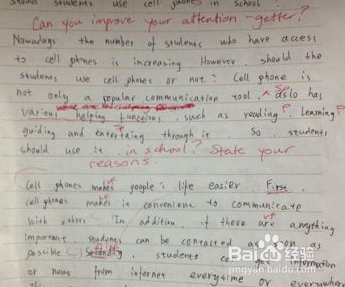 should students use cell phones in school
Can you improve your attention-getter?
Nowadays the number of students who have access
to cell phones is increasing However, should the
students use cell phones or not? Cell phone is
not only a popular communication tool, also has
various helping functions such as reading, Learning
guiding and through it So students
should use it in school? State your
reasons.
Cell phones makes people's life easier First,
cell phones makes it convenient to communicate
with others In addition, if there are anything
important, students can be contacted as soon as
possible Secondly, students can get information
or news from internet everytime or everywhere
Baidu 百度经验
jingyan.baidu.com